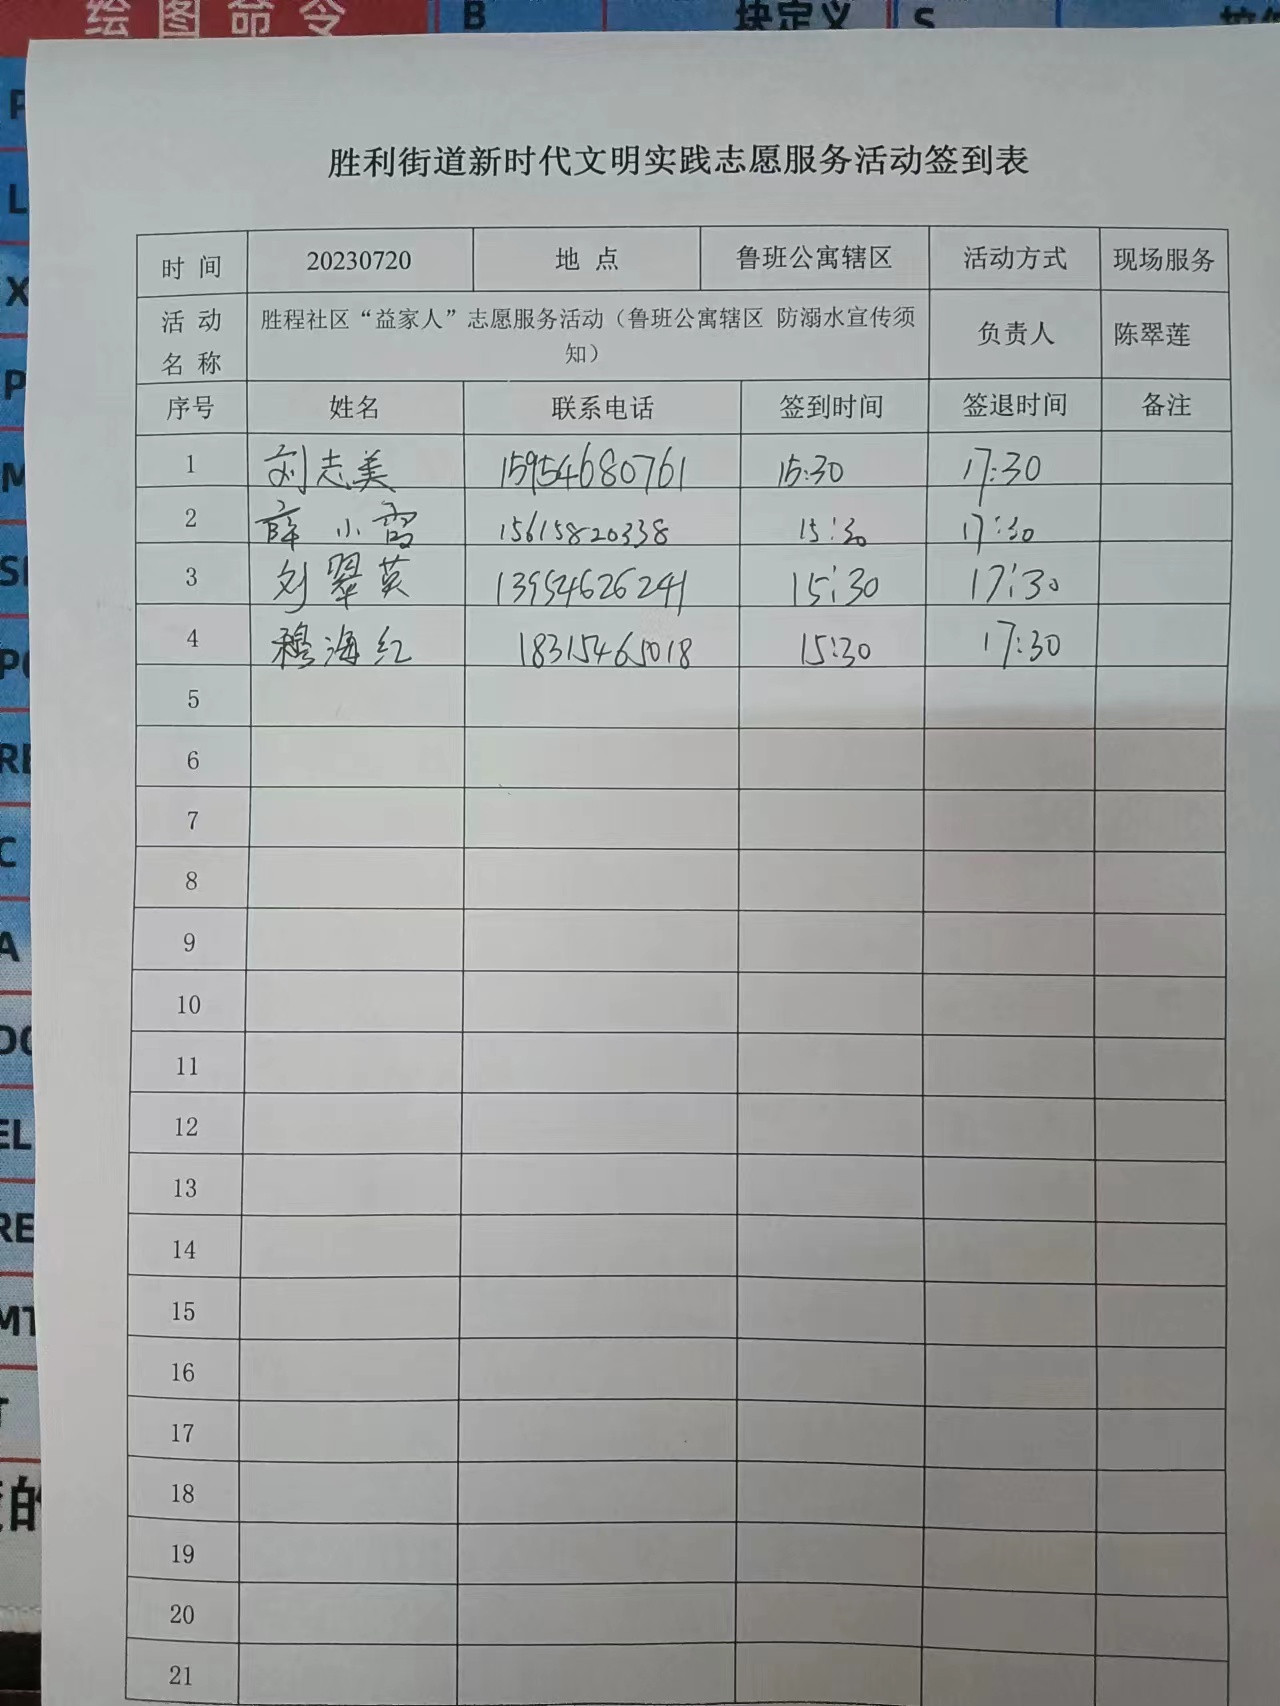 绘图命令 B 块定义 S
胜利街道新时代文明实践志愿服务活动签到表
时 间 20230720 地 点 鲁班公寓辖区 活动方式 现场服务
活 动 胜程社区“益家人”志愿服务活动（鲁班公寓辖区 防溺水宣传须
名 称 知） 负责人 陈翠莲
序号 姓名 联系电话 签到时间 签退时间 备注
1 刘志美 15954680761 15:30 17:30
2 薛小霞 15615820338 15:30 17:30
3 刘翠英 13954626241 15:30 17:30
4 穆海红 18315465018 15:30 17:30
5
6
7
8
9
10
11
12
13
14
15
16
17
18
19
20
21
L
X
P
M
C
A
的